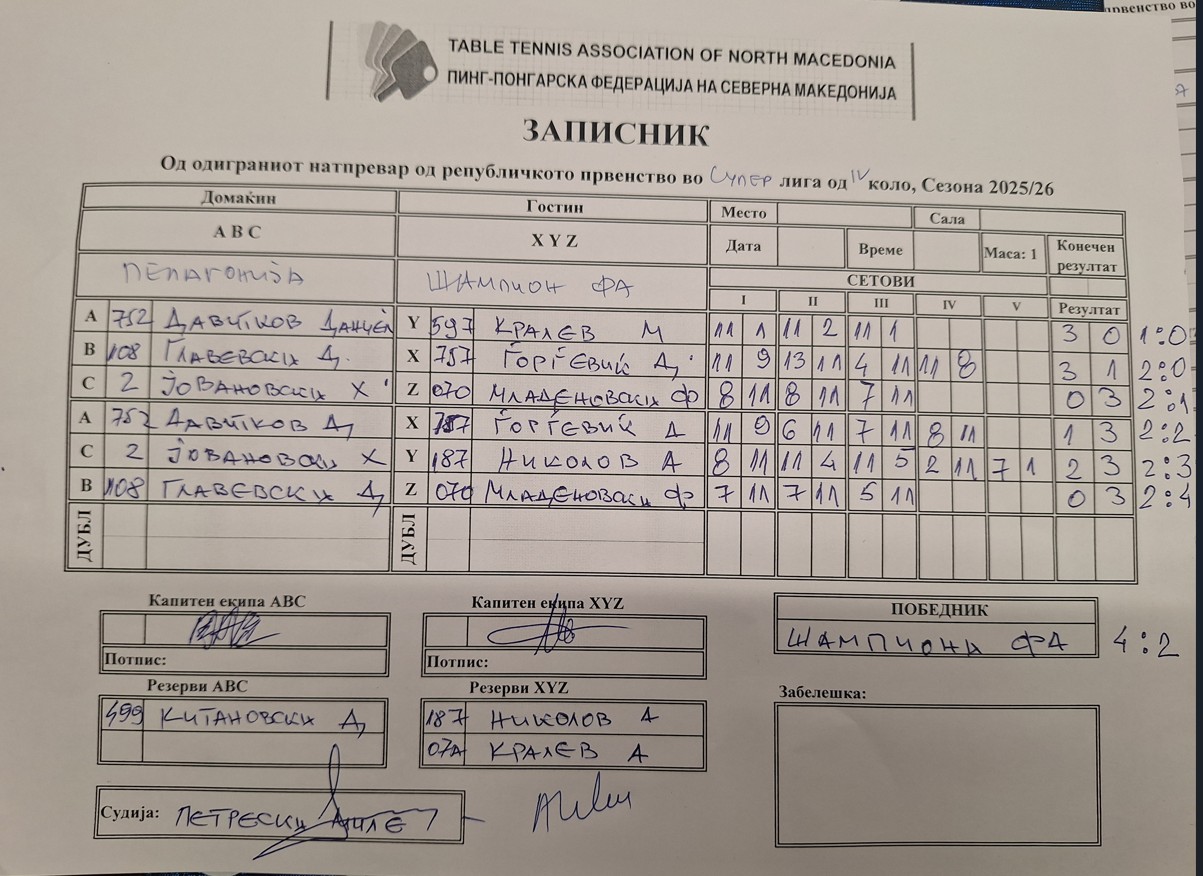 TABLE TENNIS ASSOCIATION OF NORTH MACEDONIA
ПИНГ-ПОНГАРСКА ФЕДЕРАЦИЈА НА СЕВЕРНА МАКЕДОНИЈА
ЗАПИСНИК
Од одиграниот натпревар од републичкото првенство во СУПЕР лига од IV коло, Сезона 2025/26
Домаќин Гостин Место Сала
A B C X Y Z Дата Време Маса: 1 Конечен резултат
ПЕЛАГОНИЈА ШАМПИОН ФА СЕТОВИ
I II III IV V Резултат
A 752 ДАВИТКОВ ДАНИЕЛ Y 597 КРАЛЕВ М 11 1 11 2 11 1 3 0 1:0
B 108 ГЛАВЕВСКИ Д. X 757 ЃОРЃЕВИЌ Д. 11 9 13 11 4 11 11 8 3 1 2:0
C 2 ЈОВАНОВСКИ Х Z 070 МЛАДЕНОВСКИ Ф 8 11 8 11 7 11 0 3 2:1
A 752 ДАВИТКОВ Д X 757 ЃОРЃЕВИЌ Д 11 9 6 11 7 11 8 11 1 3 2:2
C 2 ЈОВАНОВСКИ Х Y 187 НИКОЛОВ А 8 11 11 4 11 5 2 11 7 1 2 3 2:3
B 108 ГЛАВЕВСКИ Д Z 070 МЛАДЕНОВСКИ Ф 7 11 7 11 5 11 0 3 2:4
ДУБЛ ДУБЛ
Капитен екипа ABC Капитен екипа XYZ ПОБЕДНИК
ШАМПИОНИ ФА 4:2
Потпис: Потпис:
Резерви ABC Резерви XYZ Забелешка:
499 КИТАНОВСКИ Д 187 НИКОЛОВ А
07А КРАЛЕВ А
Судија: ПЕТРЕСКИ МИЛЕ